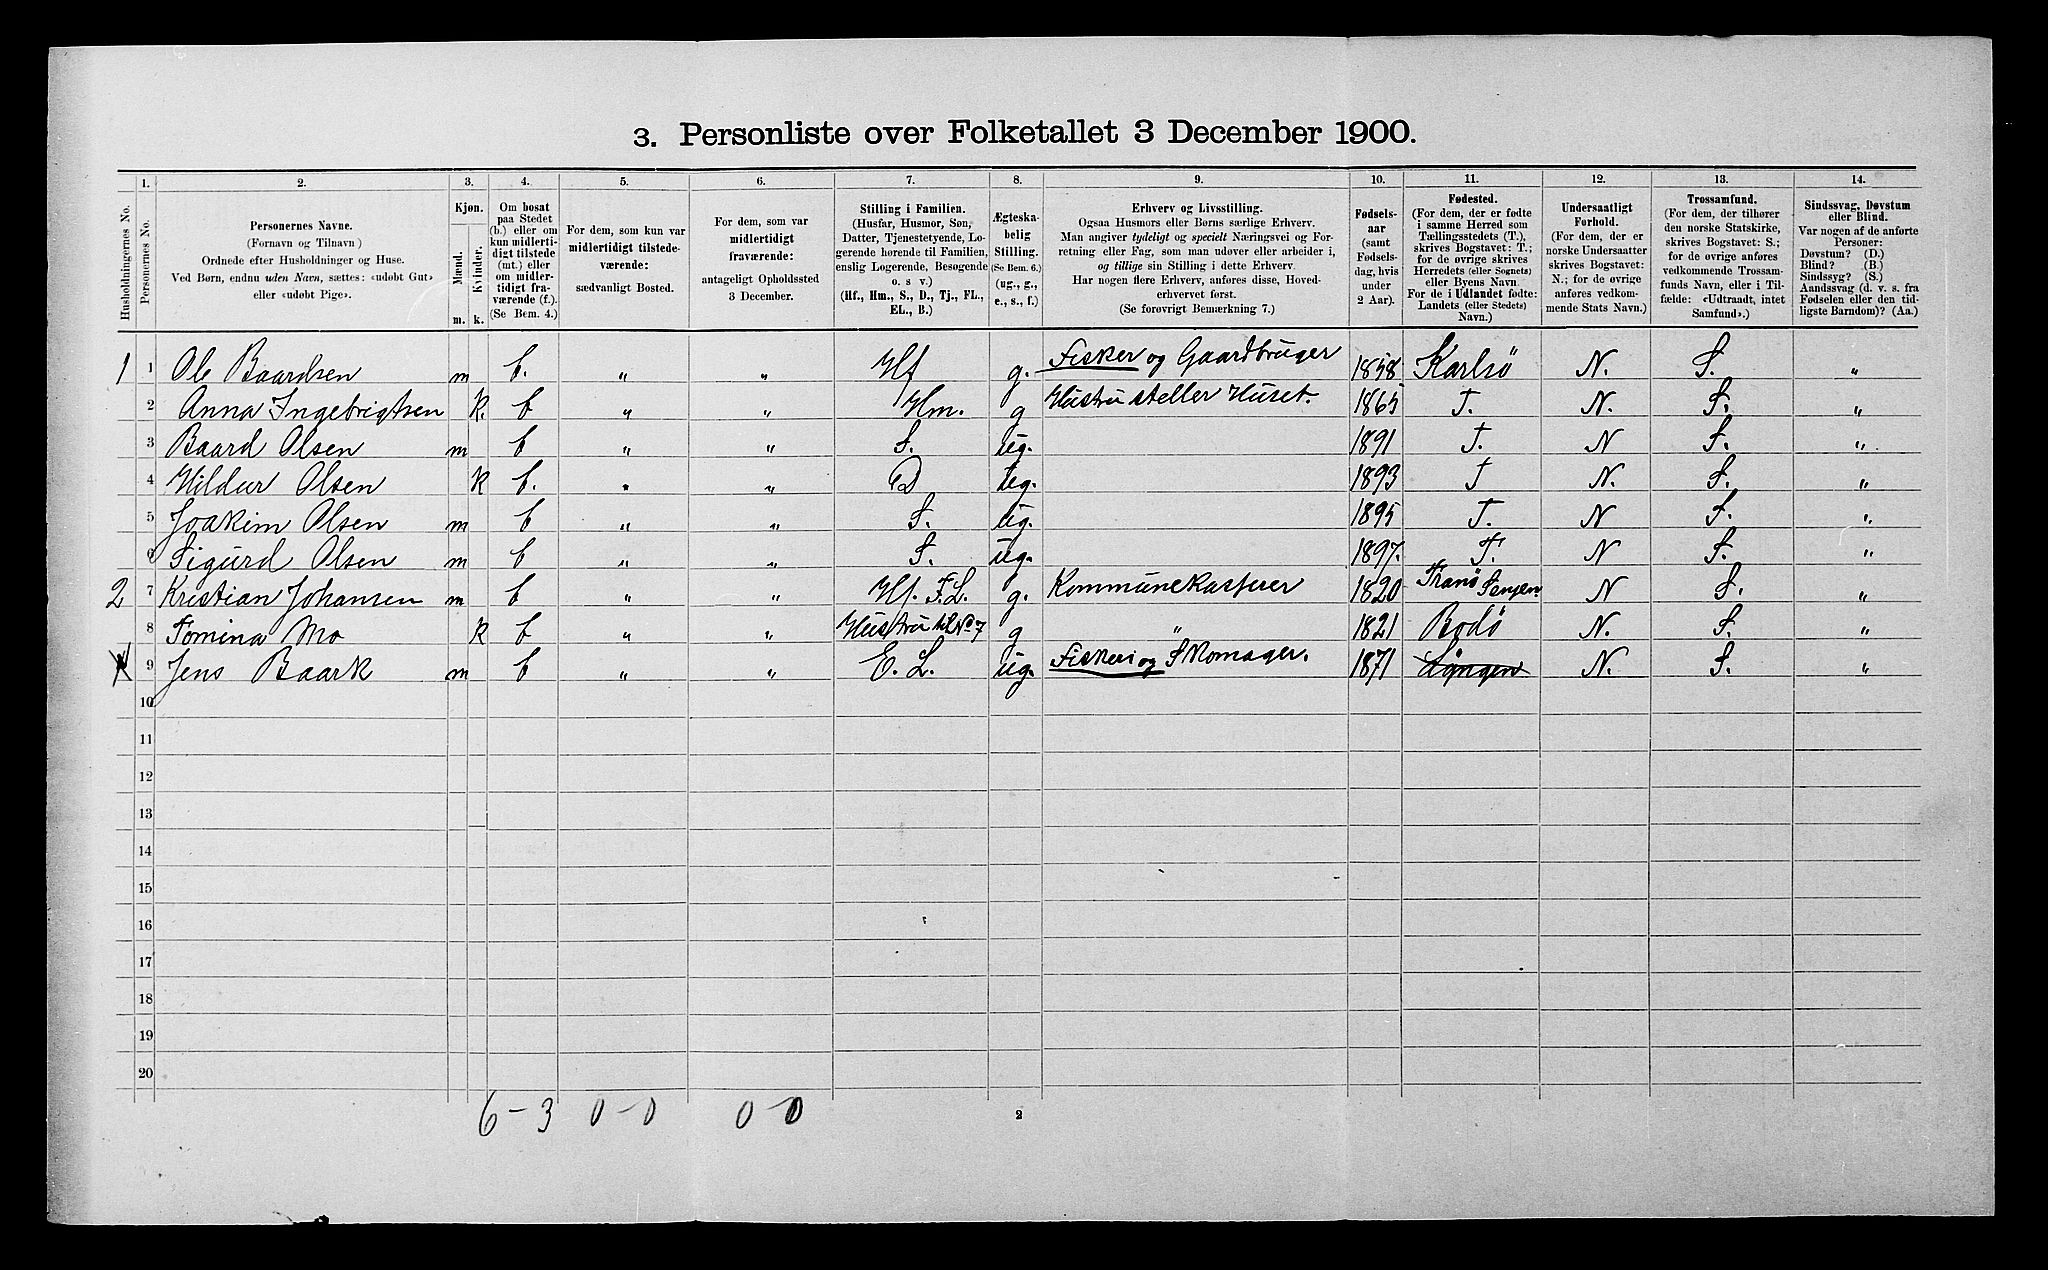 3. Personliste over Folketallet 3 December 1900.
1. 2. 3. 4. 5. 6. 7. 8. 9. 10. 11. 12. 13. 14.
Husholdningernes No.
Personernes No.
Personernes Navne.
(Fornavn og Tilnavn)
Ordnede efter Husholdninger og Huse.
Ved Børn, endnu uden Navn, sættes: «udøbt Gut»
eller «udøbt Pige».
Kjøn.
Mænd.
Kvinder.
m. k.
Om bosat
paa Stedet
(b.) eller om
kun midlerti-
digt tilstede
(mt.) eller
om midler-
tidigt fra-
værende (f.).
(Se Bem. 4.)
For dem, som kun var
midlertidigt tilstede-
værende:
sædvanligt Bosted.
For dem, som var
midlertidigt
fraværende:
antageligt Opholdssted
3 December.
Stilling i Familien.
(Husfar, Husmor, Søn,
Datter, Tjenestetyende, Lo-
gerende hørende til Familien,
enslig Logerende, Besøgende
o. s v.)
(Hf., Hm., S., D., Tj., FL.,
EL., B.)
Ægteska-
belig
Stilling.
(Se Bem. 6.)
(ug., g.,
e., s., f.)
Erhverv og Livsstilling.
Ogsaa Husmors eller Børns særlige Erhverv.
Man angiver tydeligt og specielt Næringsvei og For-
retning eller Fag, som man udøver eller arbeider i,
og tillige sin Stilling i dette Erhverv.
Har nogen flere Erhverv, anføres disse, Hoved-
erhvervet først.
(Se forøvrigt Bemærkning 7.)
Fødsels-
aar
(samt
Fødsels-
dag, hvis
under
2 Aar).
Fødested.
(For dem, der er fødte
i samme Herred som
Tællingsstedets (T.),
skrives Bogstavet: T.;
for de øvrige skrives
Herredets (eller Sognets)
eller Byens Navn.
For de i Udlandet fødte:
Landets (eller Stedets)
Navn.)
Undersaatligt
Forhold.
(For dem, der er
norske Undersaatter
skrives Bogstavet:
N.; for de øvrige
anføres vedkom-
mende Stats Navn.)
Trossamfund.
(For dem, der tilhører
den norske Statskirke,
skrives Bogstavet: S.;
for de øvrige anføres
vedkommende Trossam-
funds Navn, eller i Til-
fælde: «Udtraadt, intet
Samfund».)
Sindssvag, Døvstum
eller Blind.
Var nogen af de anførte
Personer:
Døvstum? (D.)
Blind? (B.)
Sindssyg? (S.)
Aandssvag (d. v. s. fra
Fødselen eller den tid-
ligste Barndom)? (Aa.)
1 1 Ole Baardsen m b. " " Hf g. Fisker og Gaardbruger 1858 Karlsö N. S. "
2 Anna Ingebrigtsen k. b " " Hm. g Hustru steller Huset. 1865 T. N. S. "
3 Baard Olsen m b " " S. ug. 1891 T. N S. "
4 Hildur Olsen k b. " " D ug. 1893 T N. S. "
5 Joakim Olsen m b " " S. ug. 1895 T. N S. "
6 Sigurd Olsen m b " " S. ug. 1897. T. N S. "
2 7 Kristian Johansen m b " " Hf. F.L. g. Kommunekasserer 1820 Tranö Senjen N S. "
8 Tomina Mo k b " " Hustru til No 7 g " 1821 Bodö N. S. "
9 Jens Baark m b " " E. L. ug. Fiskeri og Skomager. 1871 Lyngen N. S. "
10
11
12
13
14
15
16
17
18
19
20
6 - 3 0 - 0 0 - 0
2